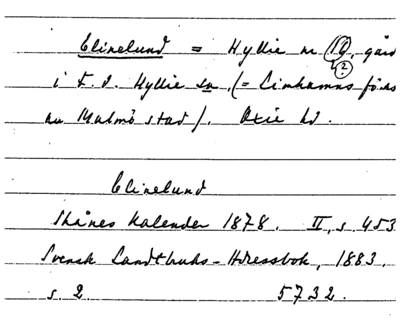 Elinelund = Hyllie nr 18, gård
?
i f. d. Hyllie sn, (= Limhamns förs
nu Malmö stad), Oxie hd.
Elinelund
Skånes Kalender 1878. II, s. 453
Svensk Landtbruks-Adressbok, 1883.
s. 2 5732.